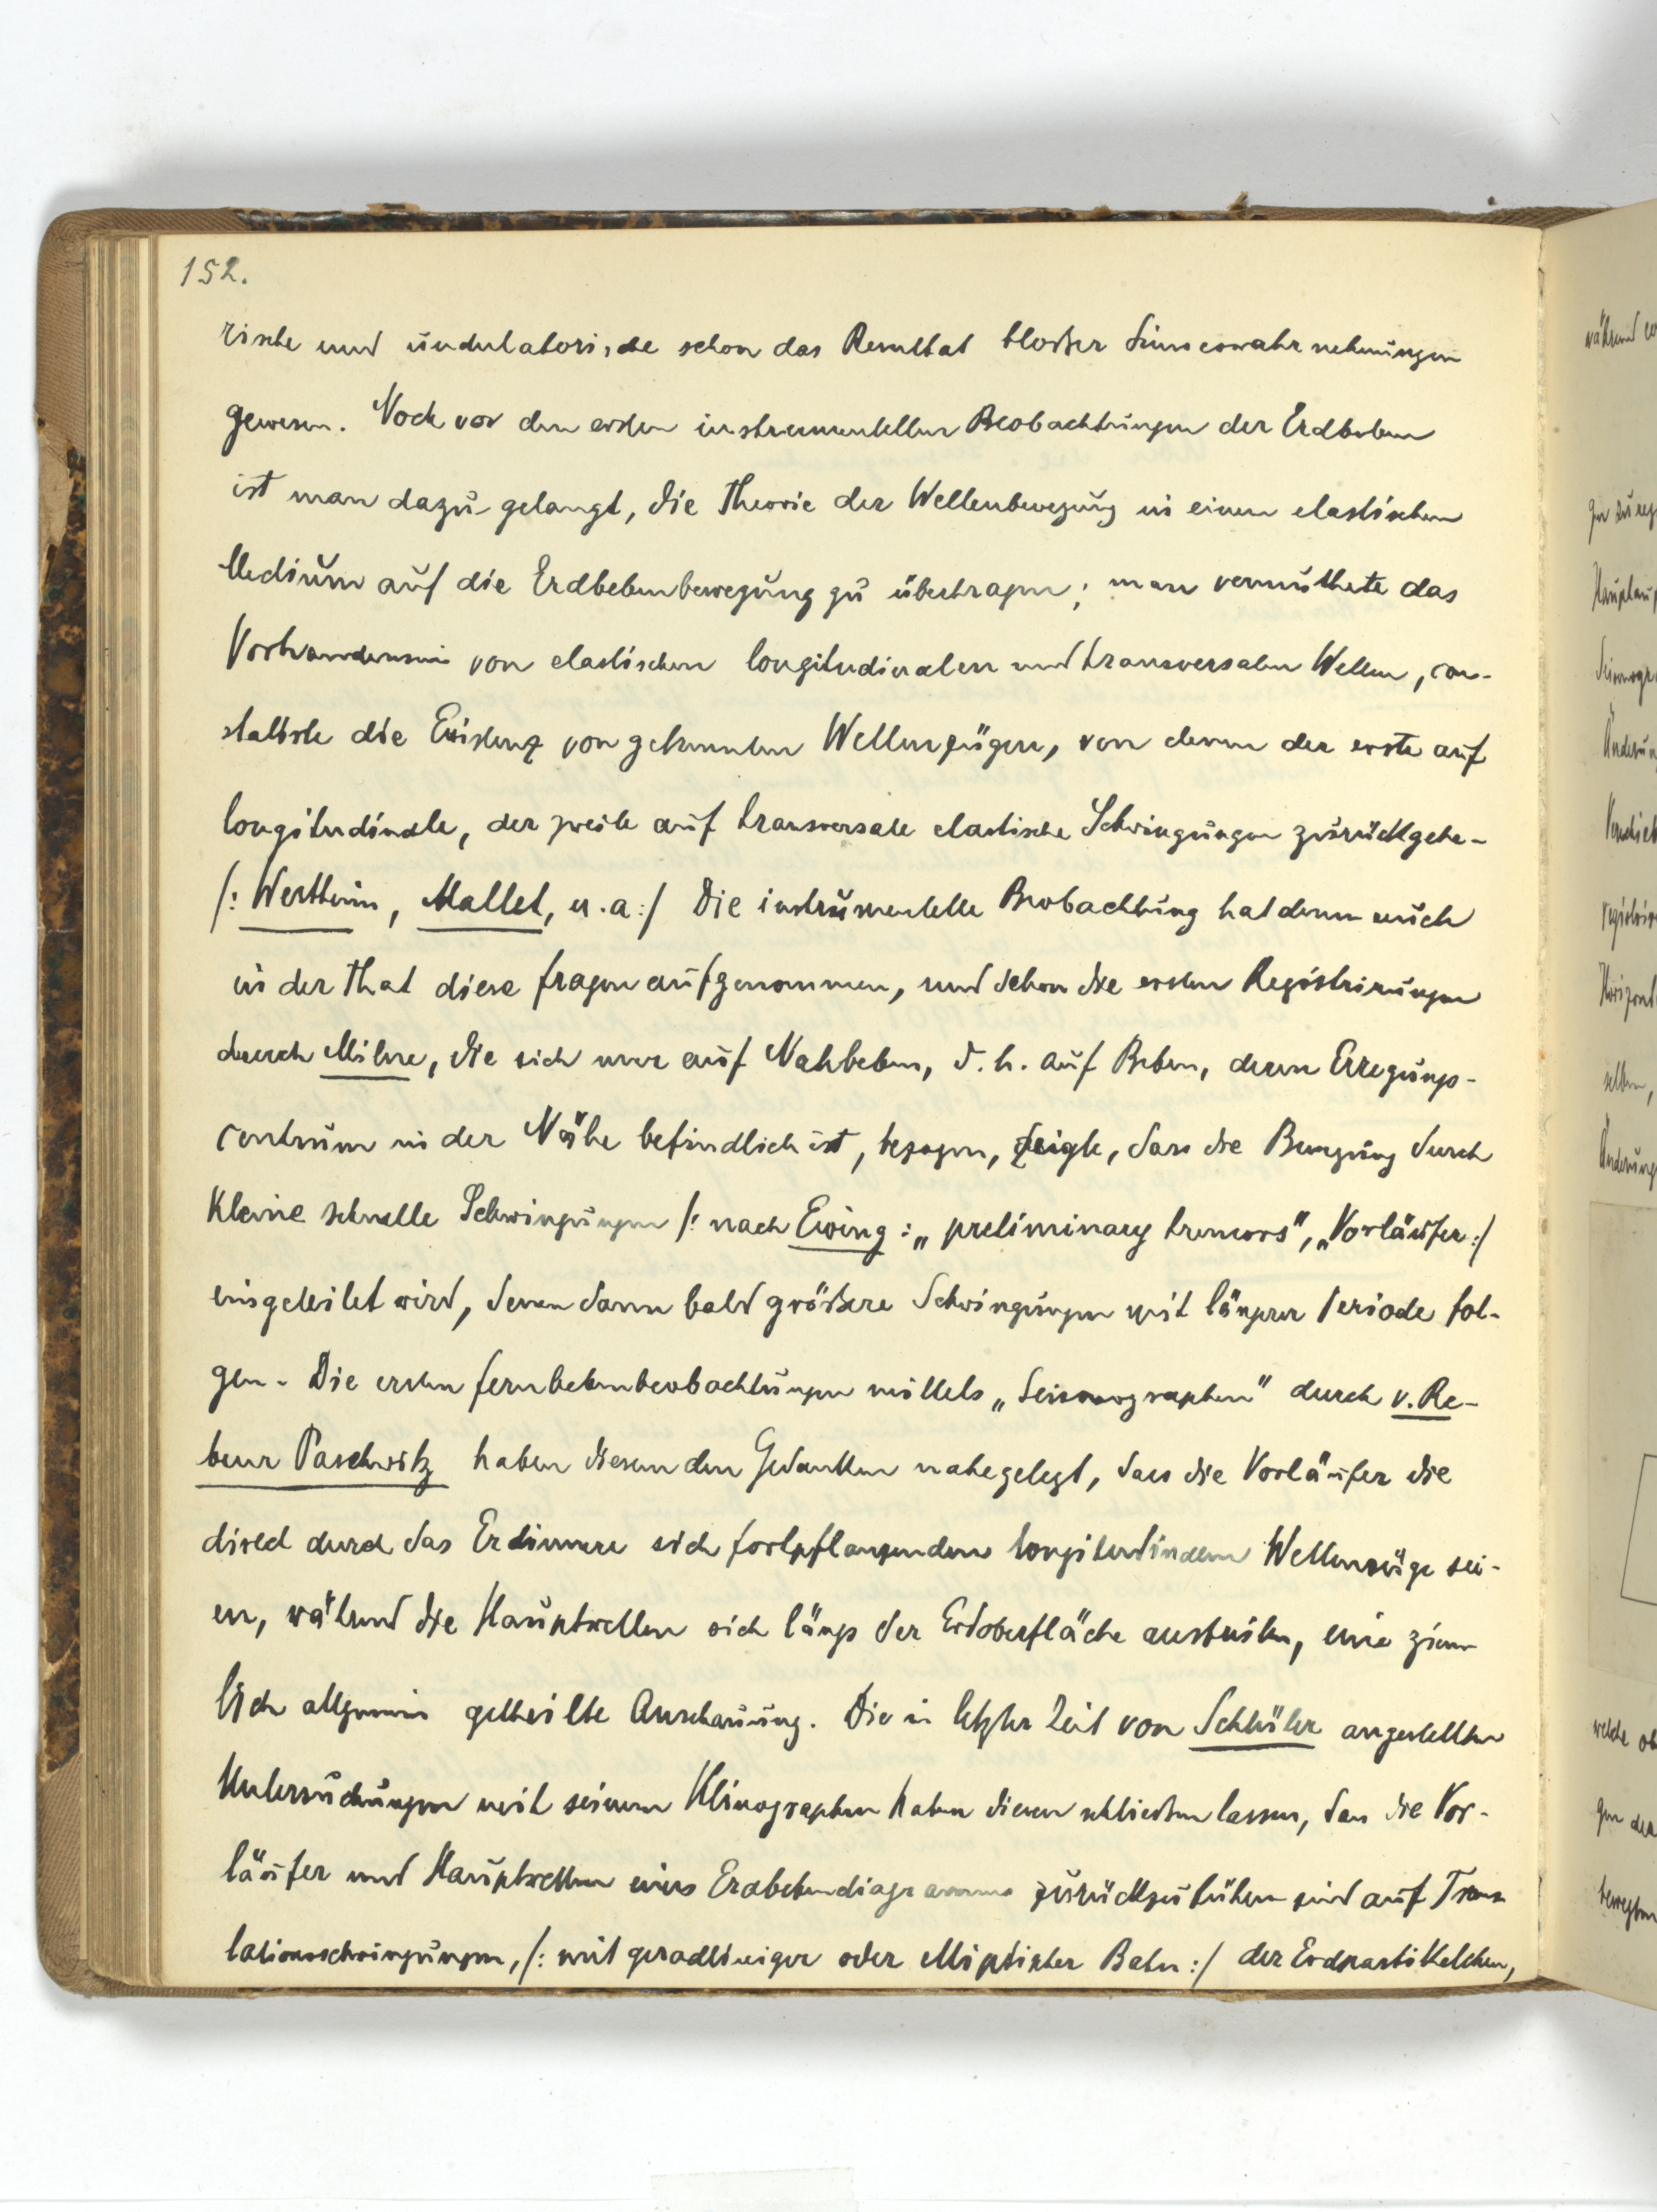 152.
rische und undulatorische schon das Resultat bloßer Sinneswahrnehmungen
gewesen. Noch vor den ersten instrumentellen Beobachtungen der Erdbeben
ist man dazu gelangt, die Theorie der Wellenbewegung in einem elastischen
Medium auf die Erdbebenbewegung zu übertragen; man vermuthete das
Vorhandensein von elastischen longitudinalen und transversalen Wellen, con-
statirte die Existenz von getrennten Wellenzügen, von denen der erste auf
longitudinale, der zweite auf transversale elastische Schwingungen zurückgehe-
/: Wertheim, Mallet, u. a :/ Die instrumentelle Beobachtung hat denn auch
in der That diese Fragen aufgenommen, und schon die ersten Registrirungen
durch Milne, die sich nur auf Nahbeben, d. h. auf Beben, deren Erregungs-
centrum in der Nähe befindlich ist, bezogen, zeigte, dass die Bewegung durch
kleine schnelle Schwingungen /: nach Ewing: „preliminary tremors", „Vorläufer:/
eingeleitet wird, denen dann bald größere Schwingungen mit längerer Periode fol-
gen. Die ersten Fernbebenbeobachtungen mittels „Seismographen" durch v. Re-
beur Paschwitz haben diesem den Gedanken nahegelegt, dass die Vorläufer die
direct durch das Erdinnere sich fortpflanzenden longitudinalen Wellenzüge sei-
en, während die Hauptwellen sich längs der Erdoberfläche ausbreiten, eine ziem
lich allgemein getheilte Anschauung. Die in letzter Zeit von Schlüter angestellten
Untersuchungen mit seinem Klinographen haben diesen schließen lassen, dass die Vor-
läufer und Hauptwellen eines Erdbebendiagramms zurückzuführen sind auf Trans
lationsschwingungen, /: mit geradliniger oder elliptischer Bahn :/ der Erdpartikelchen,